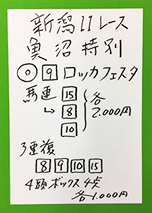 新潟11レース
魚沼特別
◎ 9 ロッカフェスタ
馬連 15
→ 8
10
各2.000円
3連複
8 9 10 15
4頭ボックス4点
各1.000円